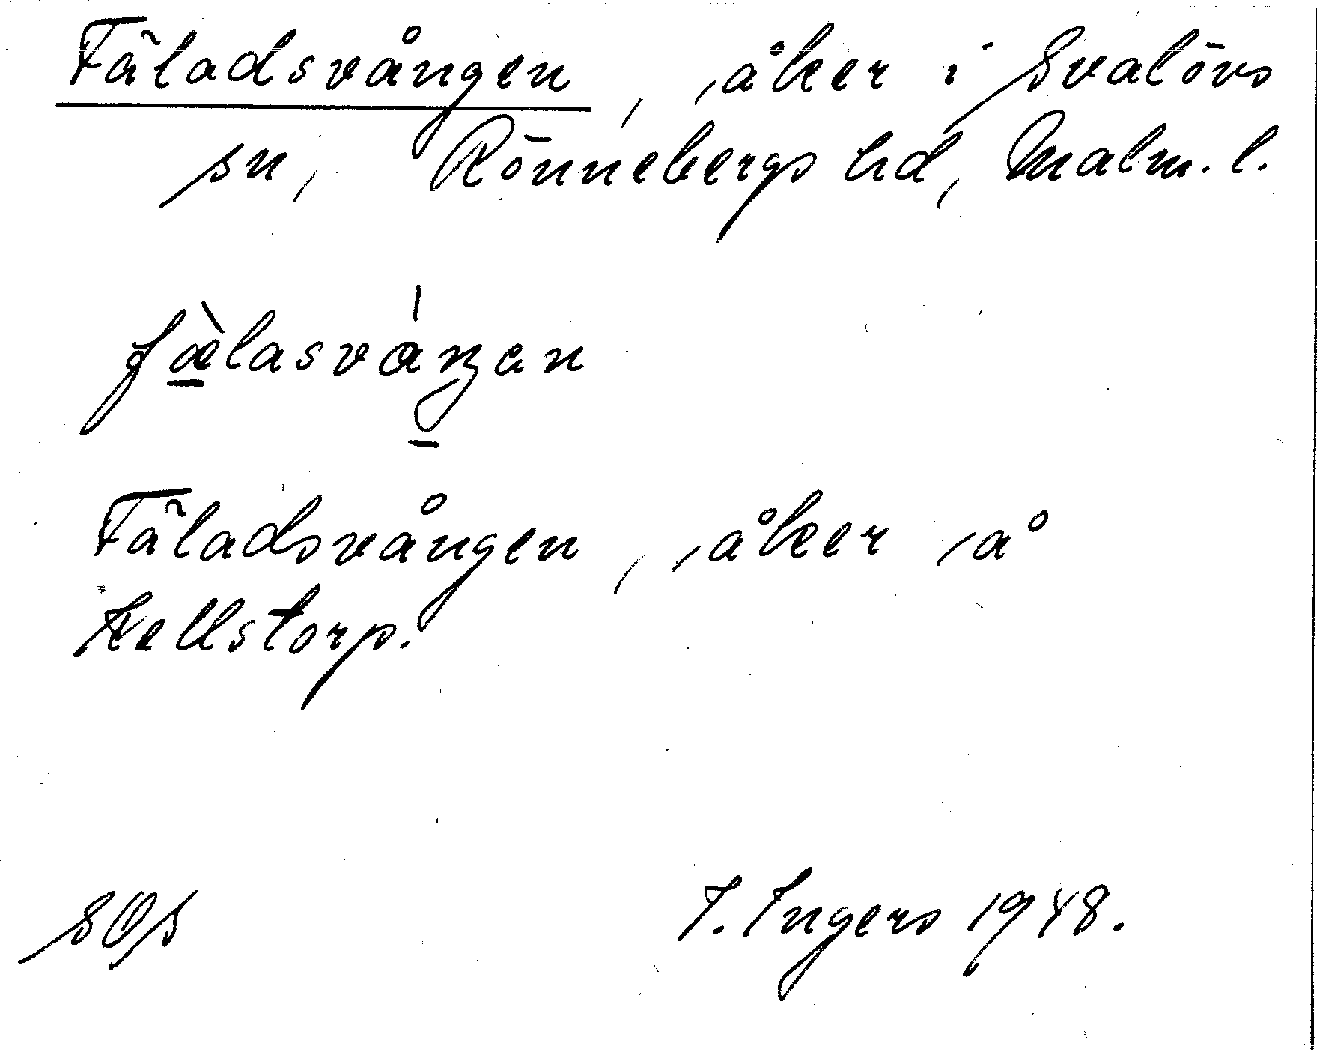 Fäladsvången, åker i Svalövs
sn, Rönnebergs hd, Malm. l.
fæ̀lasváŋen
Fäladsvången, åker å
Kellstorp.
SOS I. Ingers 1948.